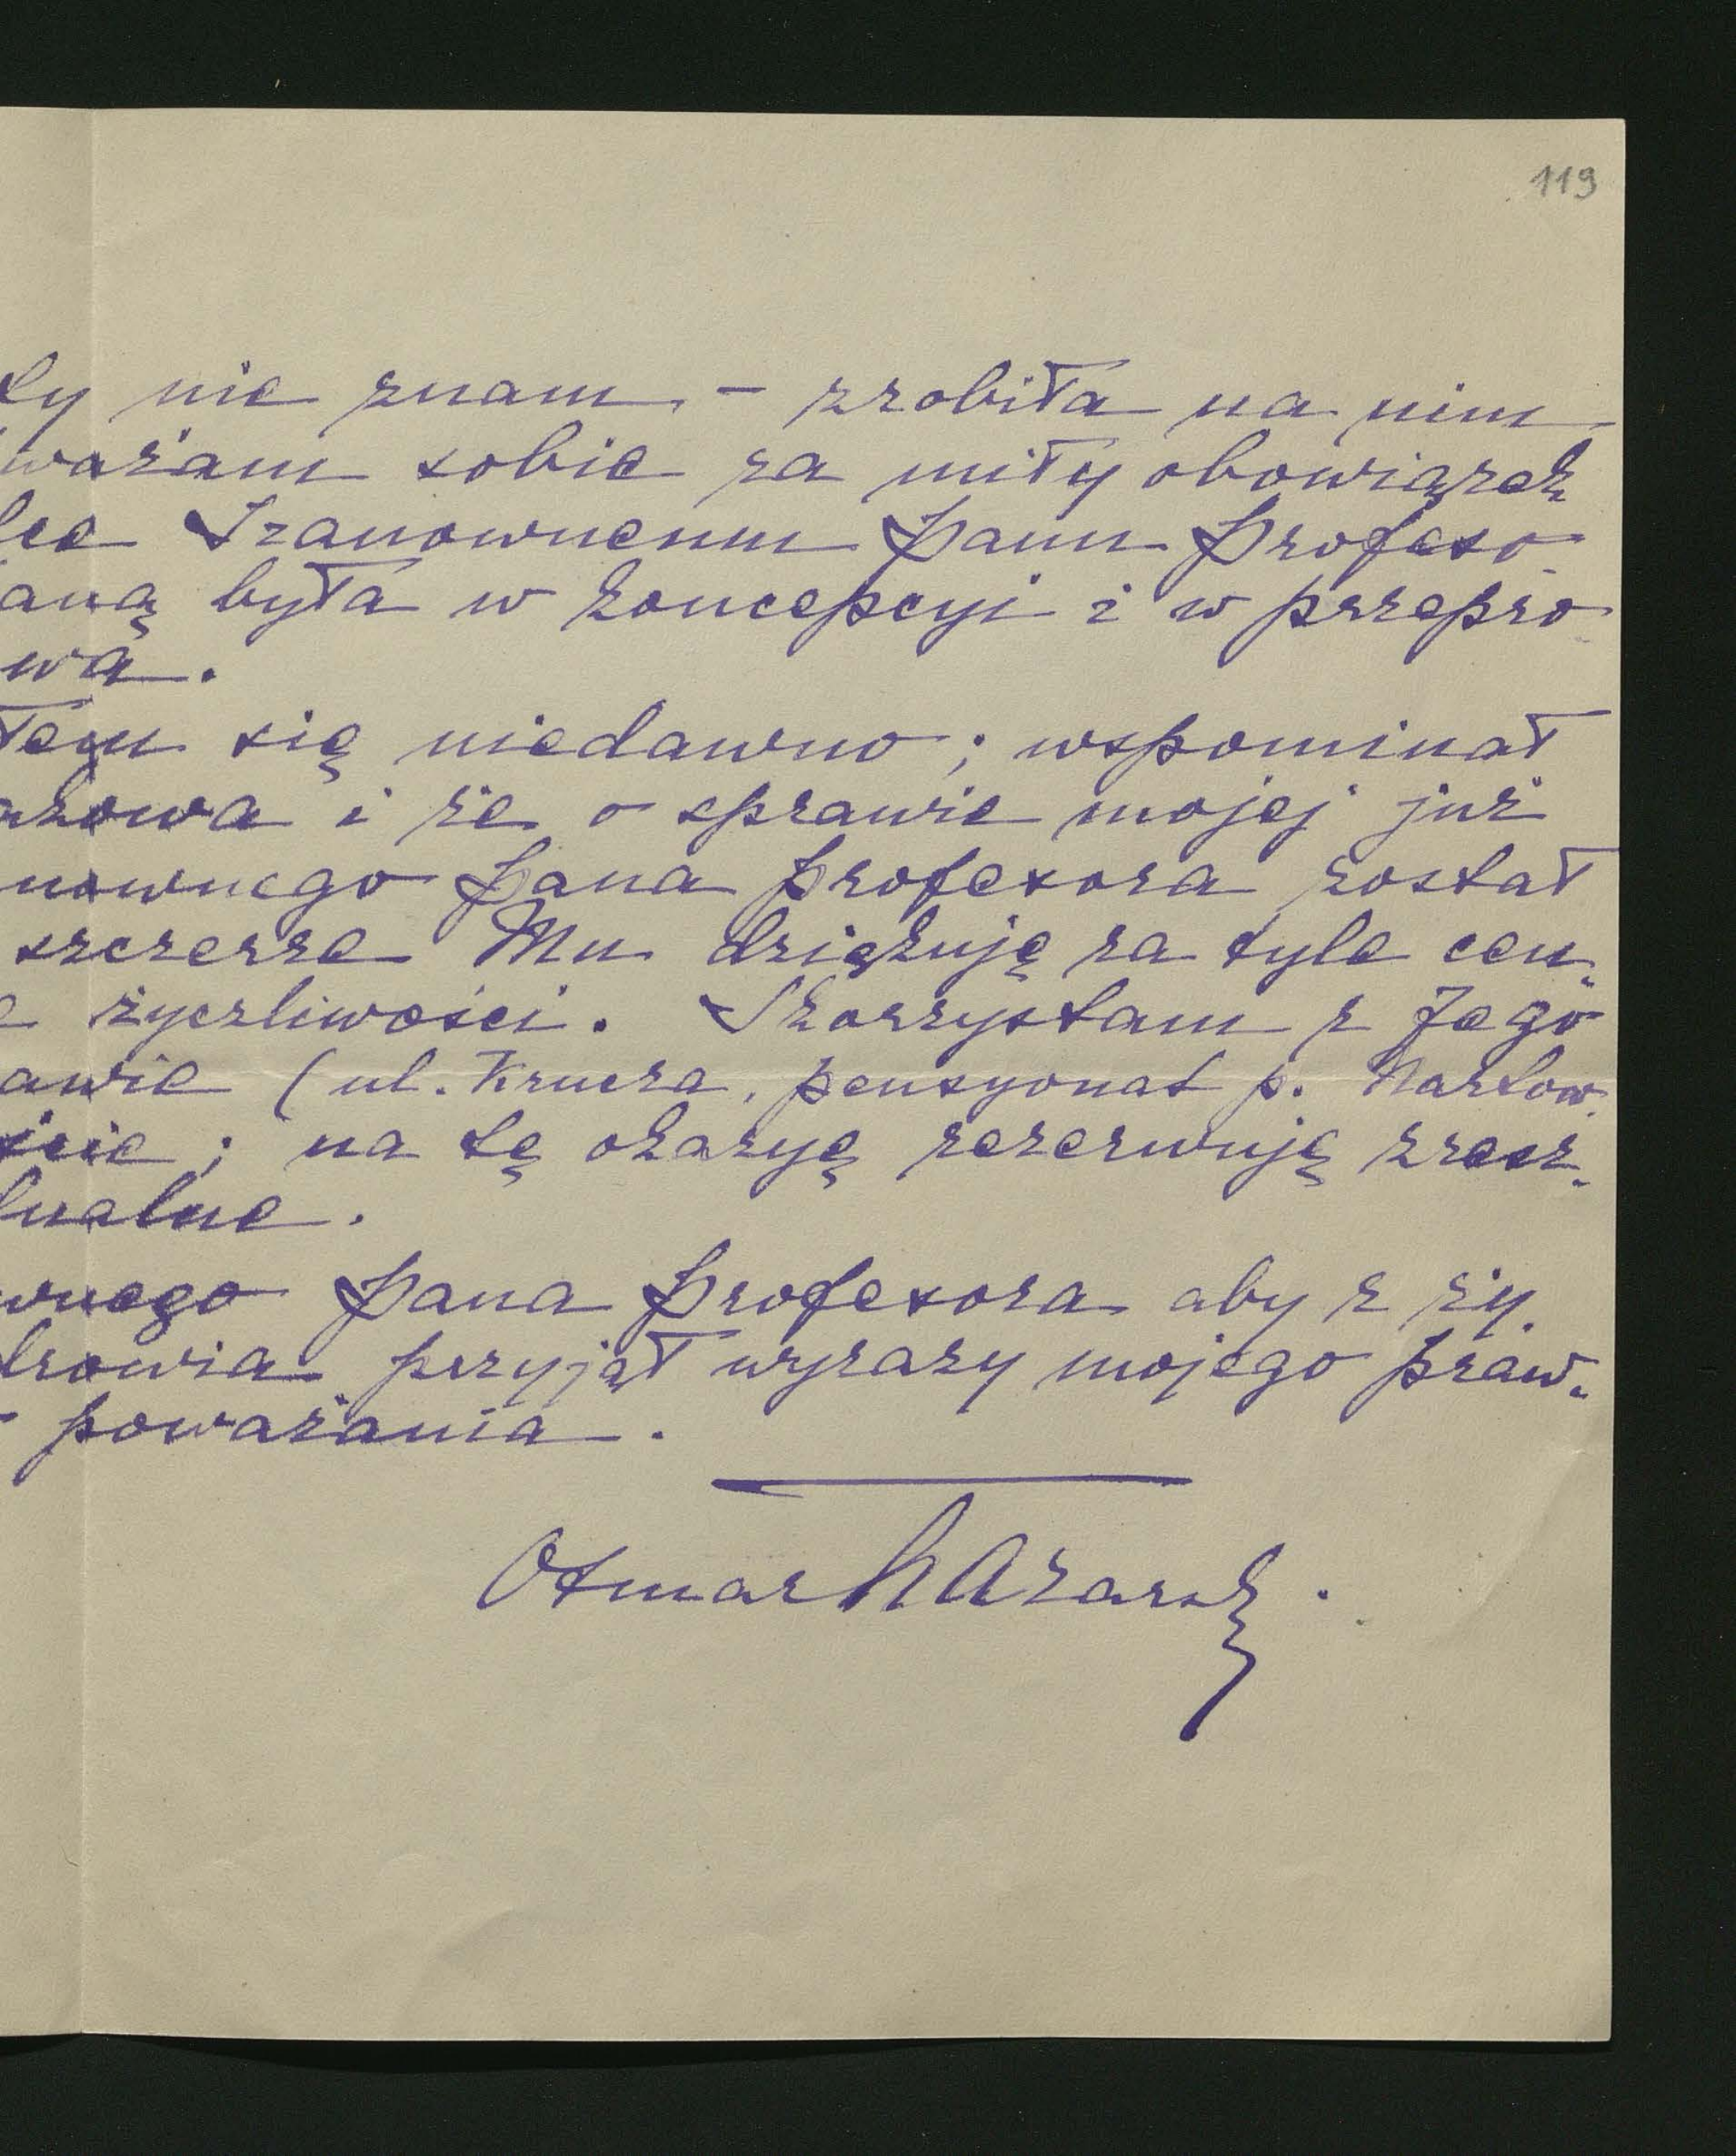 119
ty nie znam – zrobiła na nim
ważam sobie za miły obowiązek
lee Szanownemu Panu Profeso-
aną była w koncepcyi i w przepro-
wa.
łem się niedawno; wspominał
akowa i że o sprawie mojej już
nownego Pana Profesora został
szczerze Mu dziękuję za tyle cen-
e życzliwości. Skorzystam z Jego
awie (ul. Krucza, pensyonat p. Nartow-
ście; na tę okazyę rezerwuję zresz-
tualne.
wnego Pana Profesora aby z ży-
drowia przyjął wyrazy mojego praw-
poważania.
Otmar